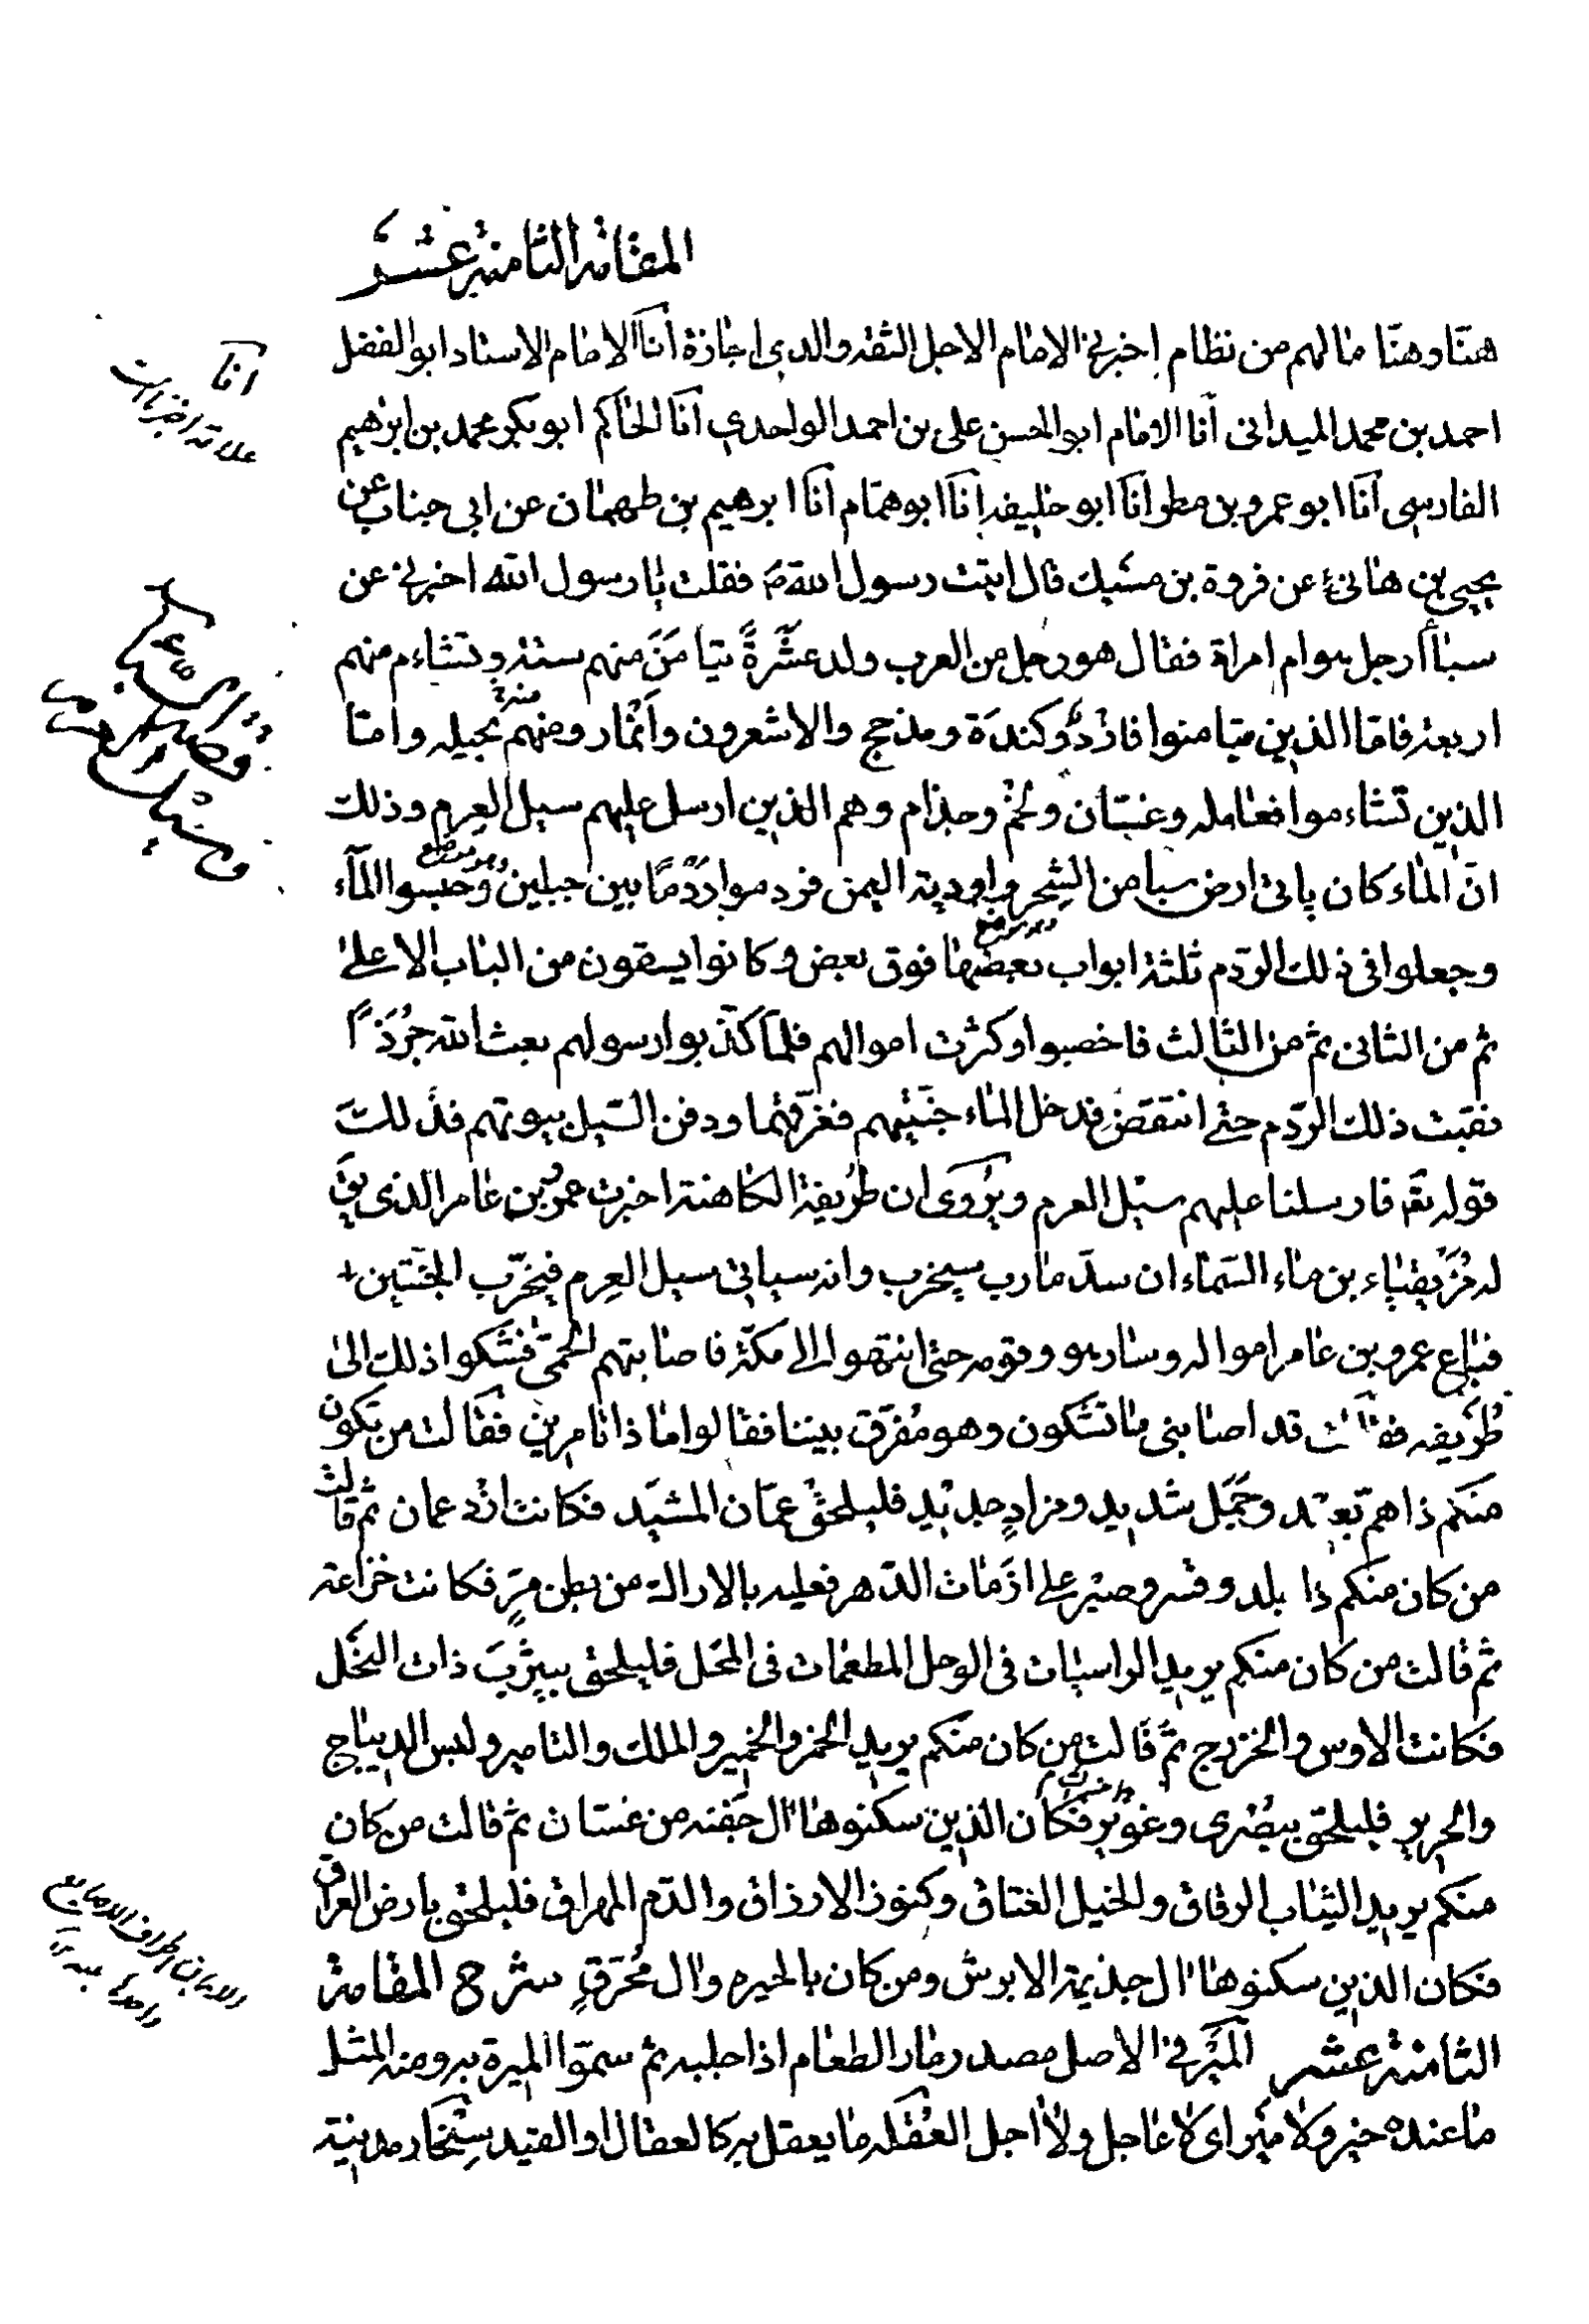 المقامة الثامنة عشر
هنّا وهنّا مالهم من نظام اخبرني الامام الاجل الثقة والدي اجازة انا الامام الاستاد ابو الفضل
احمد بن محمد الميداني انا الامام ابو الحسن علي بن احمد الواحدي انا الحاكم ابو بكر محمد بن ابرهيم
الفارسي انا ابو عمرو بن مطر انا ابو خليفه انا ابو همام انا ابرهيم بن طهمان عن ابي جناب عن
يحيى بن هانئ عن فروة بن مسيك قال اتيت رسول الله ص فقلت يا رسول الله اخبرني عن
سبا أرجل هو ام امراة فقال هو رجل من العرب ولد عَشَرَةً تيامَنَ منهم ستة وتشاءم منهم
اربعة فاما الذين تيامنوا فازد وكندة ومذحج والاشعرون وانمار ومنهم بجيله واما
الذين تشاءموا فعامله وغسّان ولخم وجذام وهم الذين ارسل عليهم سيل العرم وذلك
ان الماء كان ياتي ارض سبا من الشحر واودية اليمن فردموا رَدْمًا بين جبلين وحبسوا الماء
وجعلوا في ذلك الردم ثلثة ابواب بعضها فوق بعض وكانوا يسقون من الباب الاعلى
ثم من الثاني ثم من الثالث فاخصبوا وكثرت اموالهم فلما كذّبوا رسولهم بعث الله جُرَذًا
نقبت ذلك الردم حتى انتقض فدخل الماء جنّتيهم فغرّقهما ودفن السّيل بيوتهم فذلك
قوله تعَ فارسلنا عليهم سيل العرم ويُروى ان طريفة الكاهنة اخبرت عمرو بن عامر الذي يق
له مُزَيْقياء بن ماء السماء ان سدّ مارب سيخرب وانه سياتي سيل العرم فيخرّب الجنّتين
فباع عمرو بن عامر امواله وسار هو وقومه حتى انتهوا الى مكّة فاصابتهم الحمّى فشكوا ذلك الى
طُرَيفه فقالت قد اصابني ما تشكون وهو مُفرّق بيننا فقالوا ماذا تامرين فقالت من يكون
منكم ذا همّ بعيد وجمل شديد ومزادٍ جديد فليلحق عمان المشيّد فكانت ازد عمان ثم قالت
من كان منكم ذا بلد وقسر وصبر على ازمات الدهر فعليه بالاراك من بطن مرٍّ فكانت خزاعة
ثم قالت من كان منكم يريد الراسيات في الوحل المطعمات في المحل فليلحق بيثرب ذات النخل
فكانت الاوس والخزرج ثم قالت من كان منكم يريد الخمر والخمير والملك والتامير ولبس الديباج
والحرير فليلحق ببصرى وغوير فكان الذين سكنوها ال جفنه من غسان ثم قالت من كان
منكم يريد الثياب الرقاق والخيل العتاق وكنوز الارزاق والدم المهراق فليلحق بارض العراق
فكان الذين سكنوها ال جذيمة الابرش ومن كان بالحيره وال مُحَرِّقٍ شرح المقامة
الثامنة عشر المَيْر في الاصل مصدر مار الطعام اذا جلبه ثم سمّوا الميرة به ومنه المثل
ما عنده خير ولا مير اى لا عاجل ولا اجل العُقَله ما يعقل به كالعقال او القيد سِنْجَار مدينة
انا
علامة اخبرنا